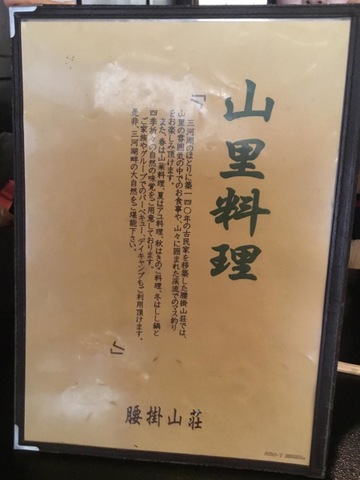 山里料理
「
三河湖のほとりに築一四〇年の古民家を移築した腰掛山荘では、
山里の雰囲気の中でのお食事や、山々に囲まれた渓流でのマス釣り
をお楽しみ頂けます。
また、春は山菜料理、夏はアユ料理、秋はきのこ料理、冬はしし鍋と
四季折々の自然の味覚をご用意しております。
ご家族やグループでのバーベキュー、デイキャンプもご利用頂けます。
是非、三河湖畔の大自然をご堪能下さい。
」
腰掛山荘